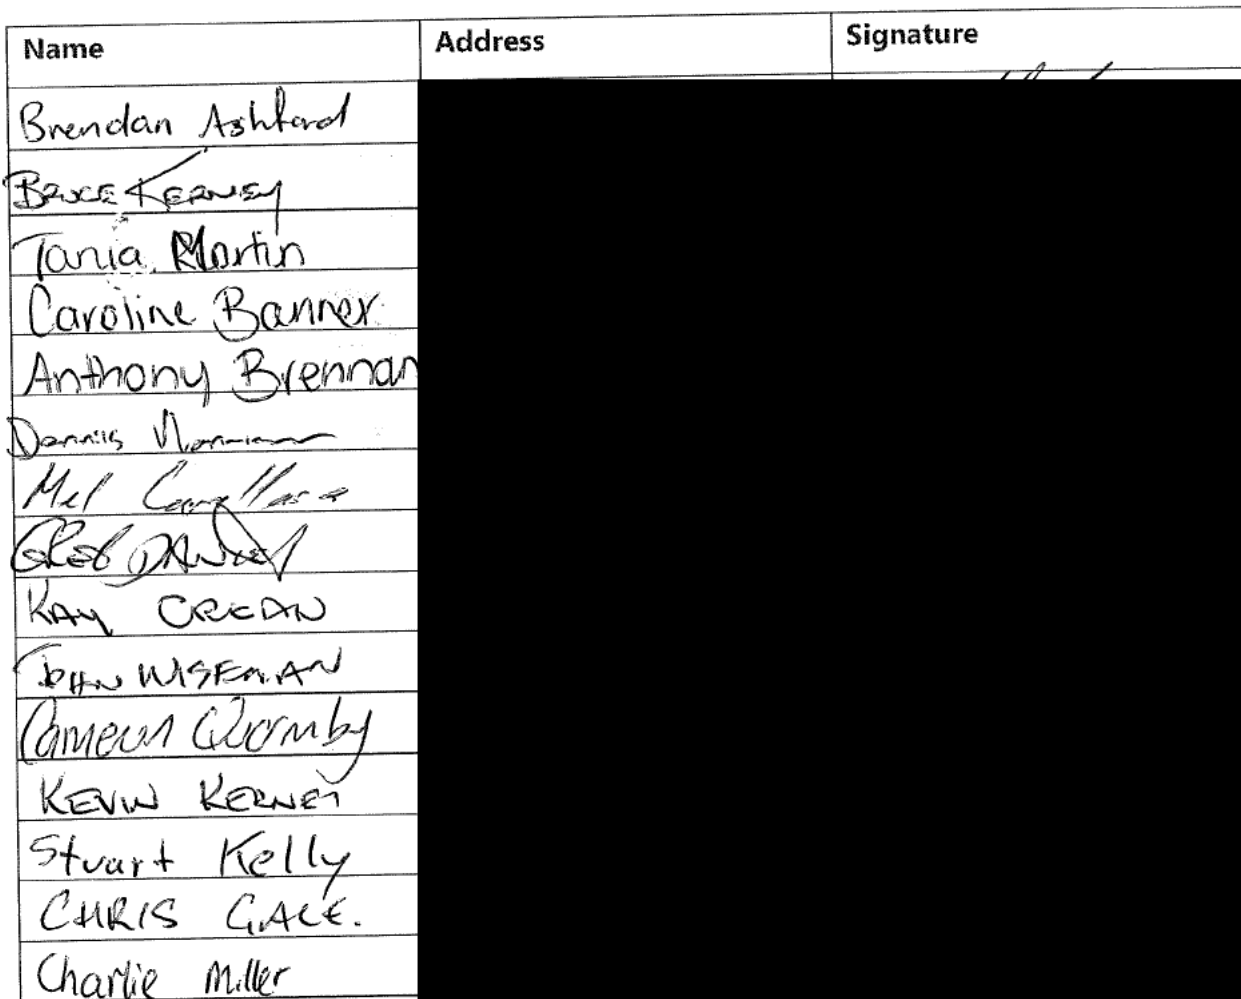 Name Address Signature
Brendan Ashford
BRUCE KERNEY
Tania Martin
Caroline Banner
Anthony Brennan
Dennis
Mel
GREG
KAY CREDAN
JOHN WISEMAN
Cameron Quormby
KEVIN KERNEY
Stuart Kelly
CHRIS GALE.
Charlie Miller